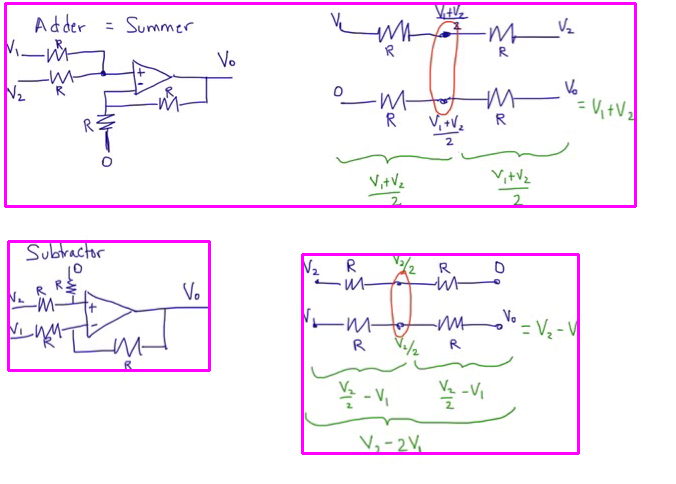 Adder = Summer
V₁ R
V₂ R
+
-
R
V₀
R
0
V₁ R (V₁+V₂)/2 R V₂
0 R (V₁+V₂)/2 R V₀ = V₁+V₂
(V₁+V₂)/2 (V₁+V₂)/2
Subtractor
0
V₂ R R
V₁ R
+
-
V₀
R
V₂ R V₂/2 R 0
V R V₂/2 R V₀ = V₂ - V
V₂/2 - V₁ V₂/2 - V₁
V₂ - 2V₁